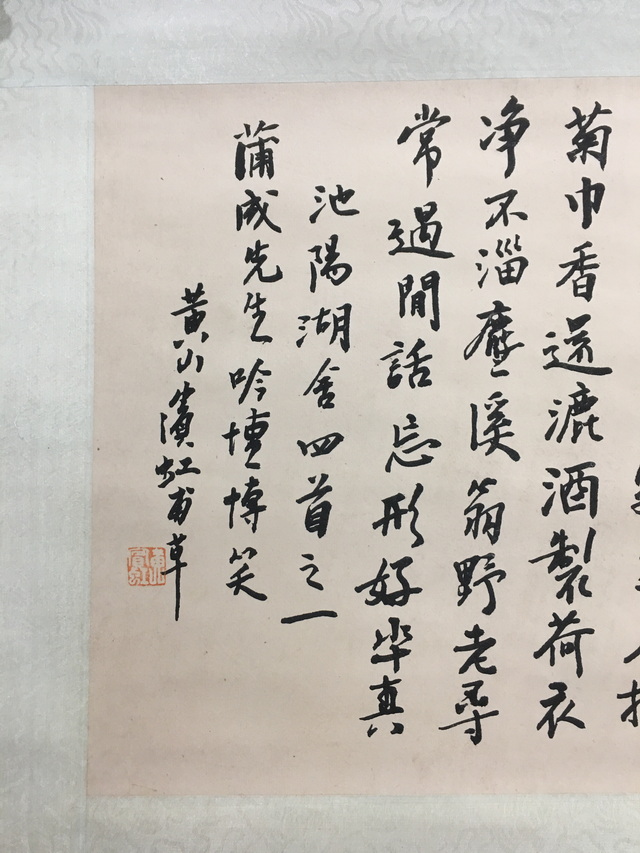 菊巾香還漉酒製荷衣
净不淄塵溪翁野老尋
常過閒話忘形好率真
池陽湖舍四首之一
蒲成先生吟壇博笑
黃山濱虹甫草